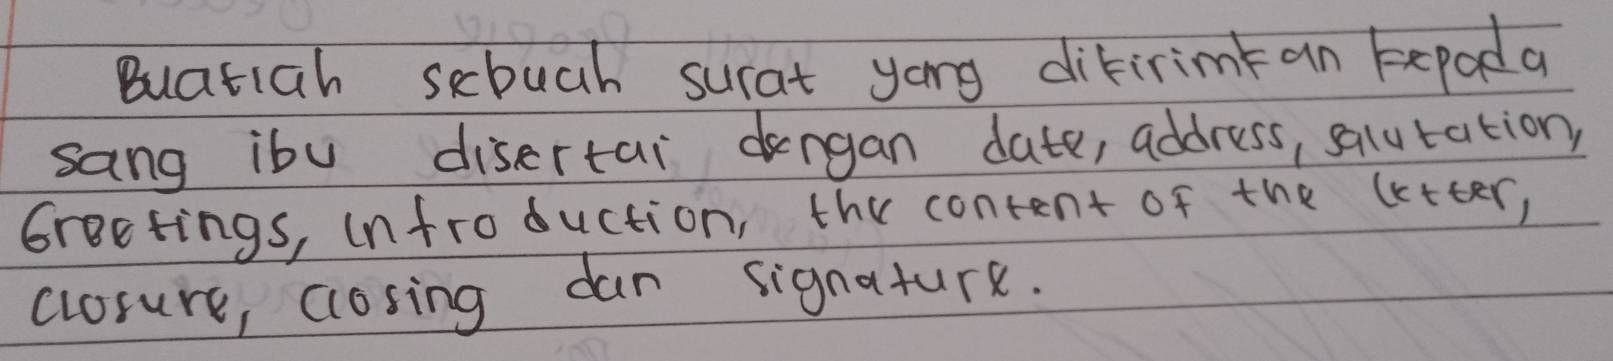 Buatlah sebuah surat yang dikirimkan kepada
sang ibu disertai dengan date, address, salutation,
Greetings, introduction, the content of the letter,
closure, closing dan signature.